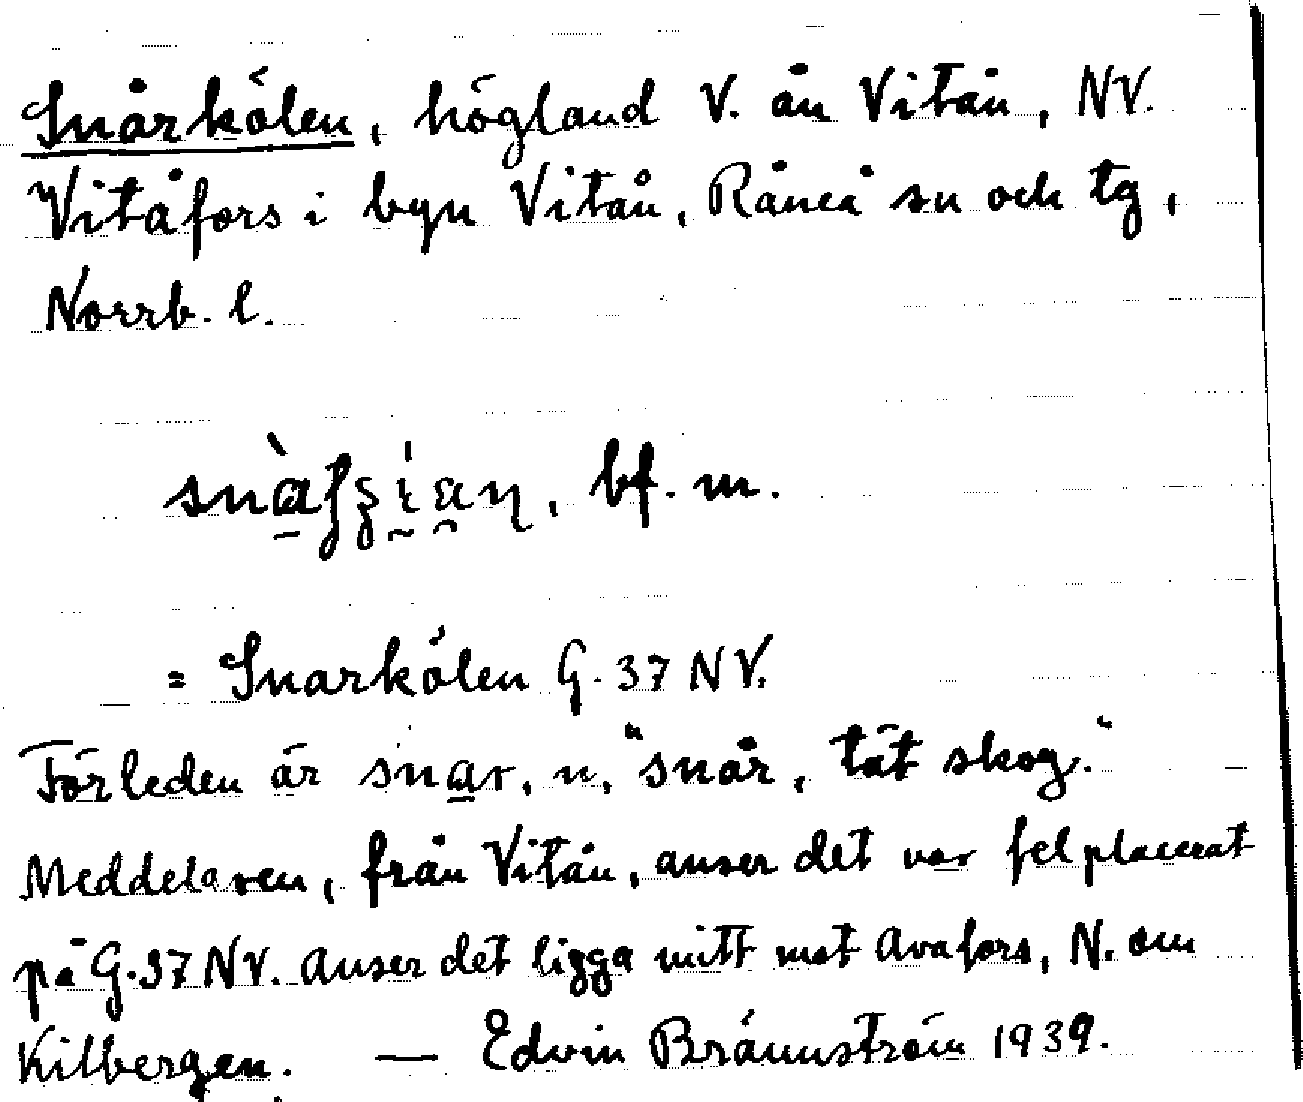 Snårkölen, högland V. ån Vitån, NV.
Vitåfors i byn Vitån, Råneå sn och tg,
Norrb. l.
bf. m.
= Snarkölen G. 37 NV.
Förleden är snar, n, "snår, tät skog."
Meddelaren, från Vitån, anser det var felplacerat
på G.37 NV. Anser det ligga mitt mot Avafors, N. om
Kilbergen. — Edvin Brännström 1939.